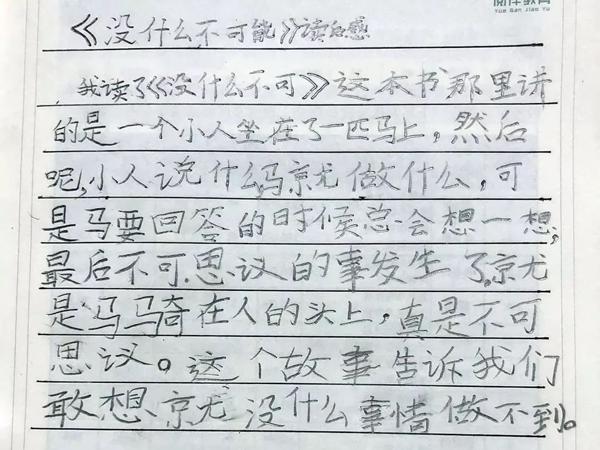 阅伴教育
Yue Ban Jiao Yu
《没什么不可能》读后感
我读了《没什么不可》这本书那里讲
的是一个小人坐在了一匹马上，然后
呢，小人说什么马就做什么，可
是马要回答的时候总会想一想，
最后不可思议的事发生了，就
是马马奇在人的头上，真是不可
思议。这个故事告诉我们
敢想就没什么事情做不到。